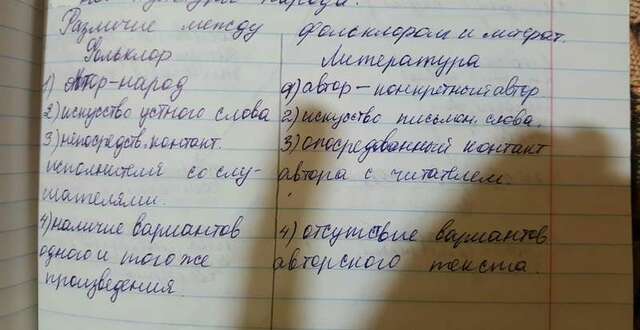 народа.
Различие между фольклором и литерат.
Фольклор
Литература
1) Автор-народ
1) автор - конкретный автор
2) искусство устного слова
2) искусство письмен. слова.
3) непосредств. контакт.
3) опосредованный контакт
исполнителя со слу-
автора с читателем.
шателями.
4) наличие вариантов
4) отсутствие вариантов
одного и того же
авторского текста.
произведения.